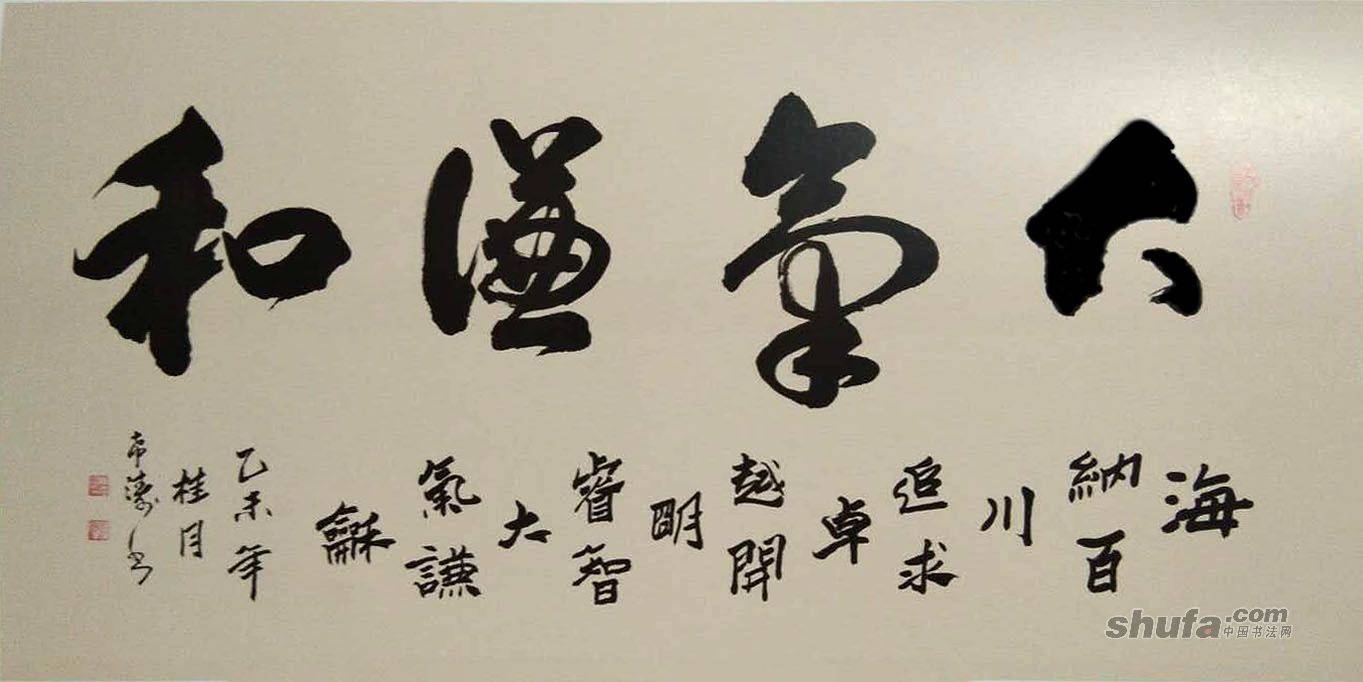 大氣謙和
海納百川追求卓越開明睿智大氣謙龢
乙未年
桂月
shufa.com
中国书法网